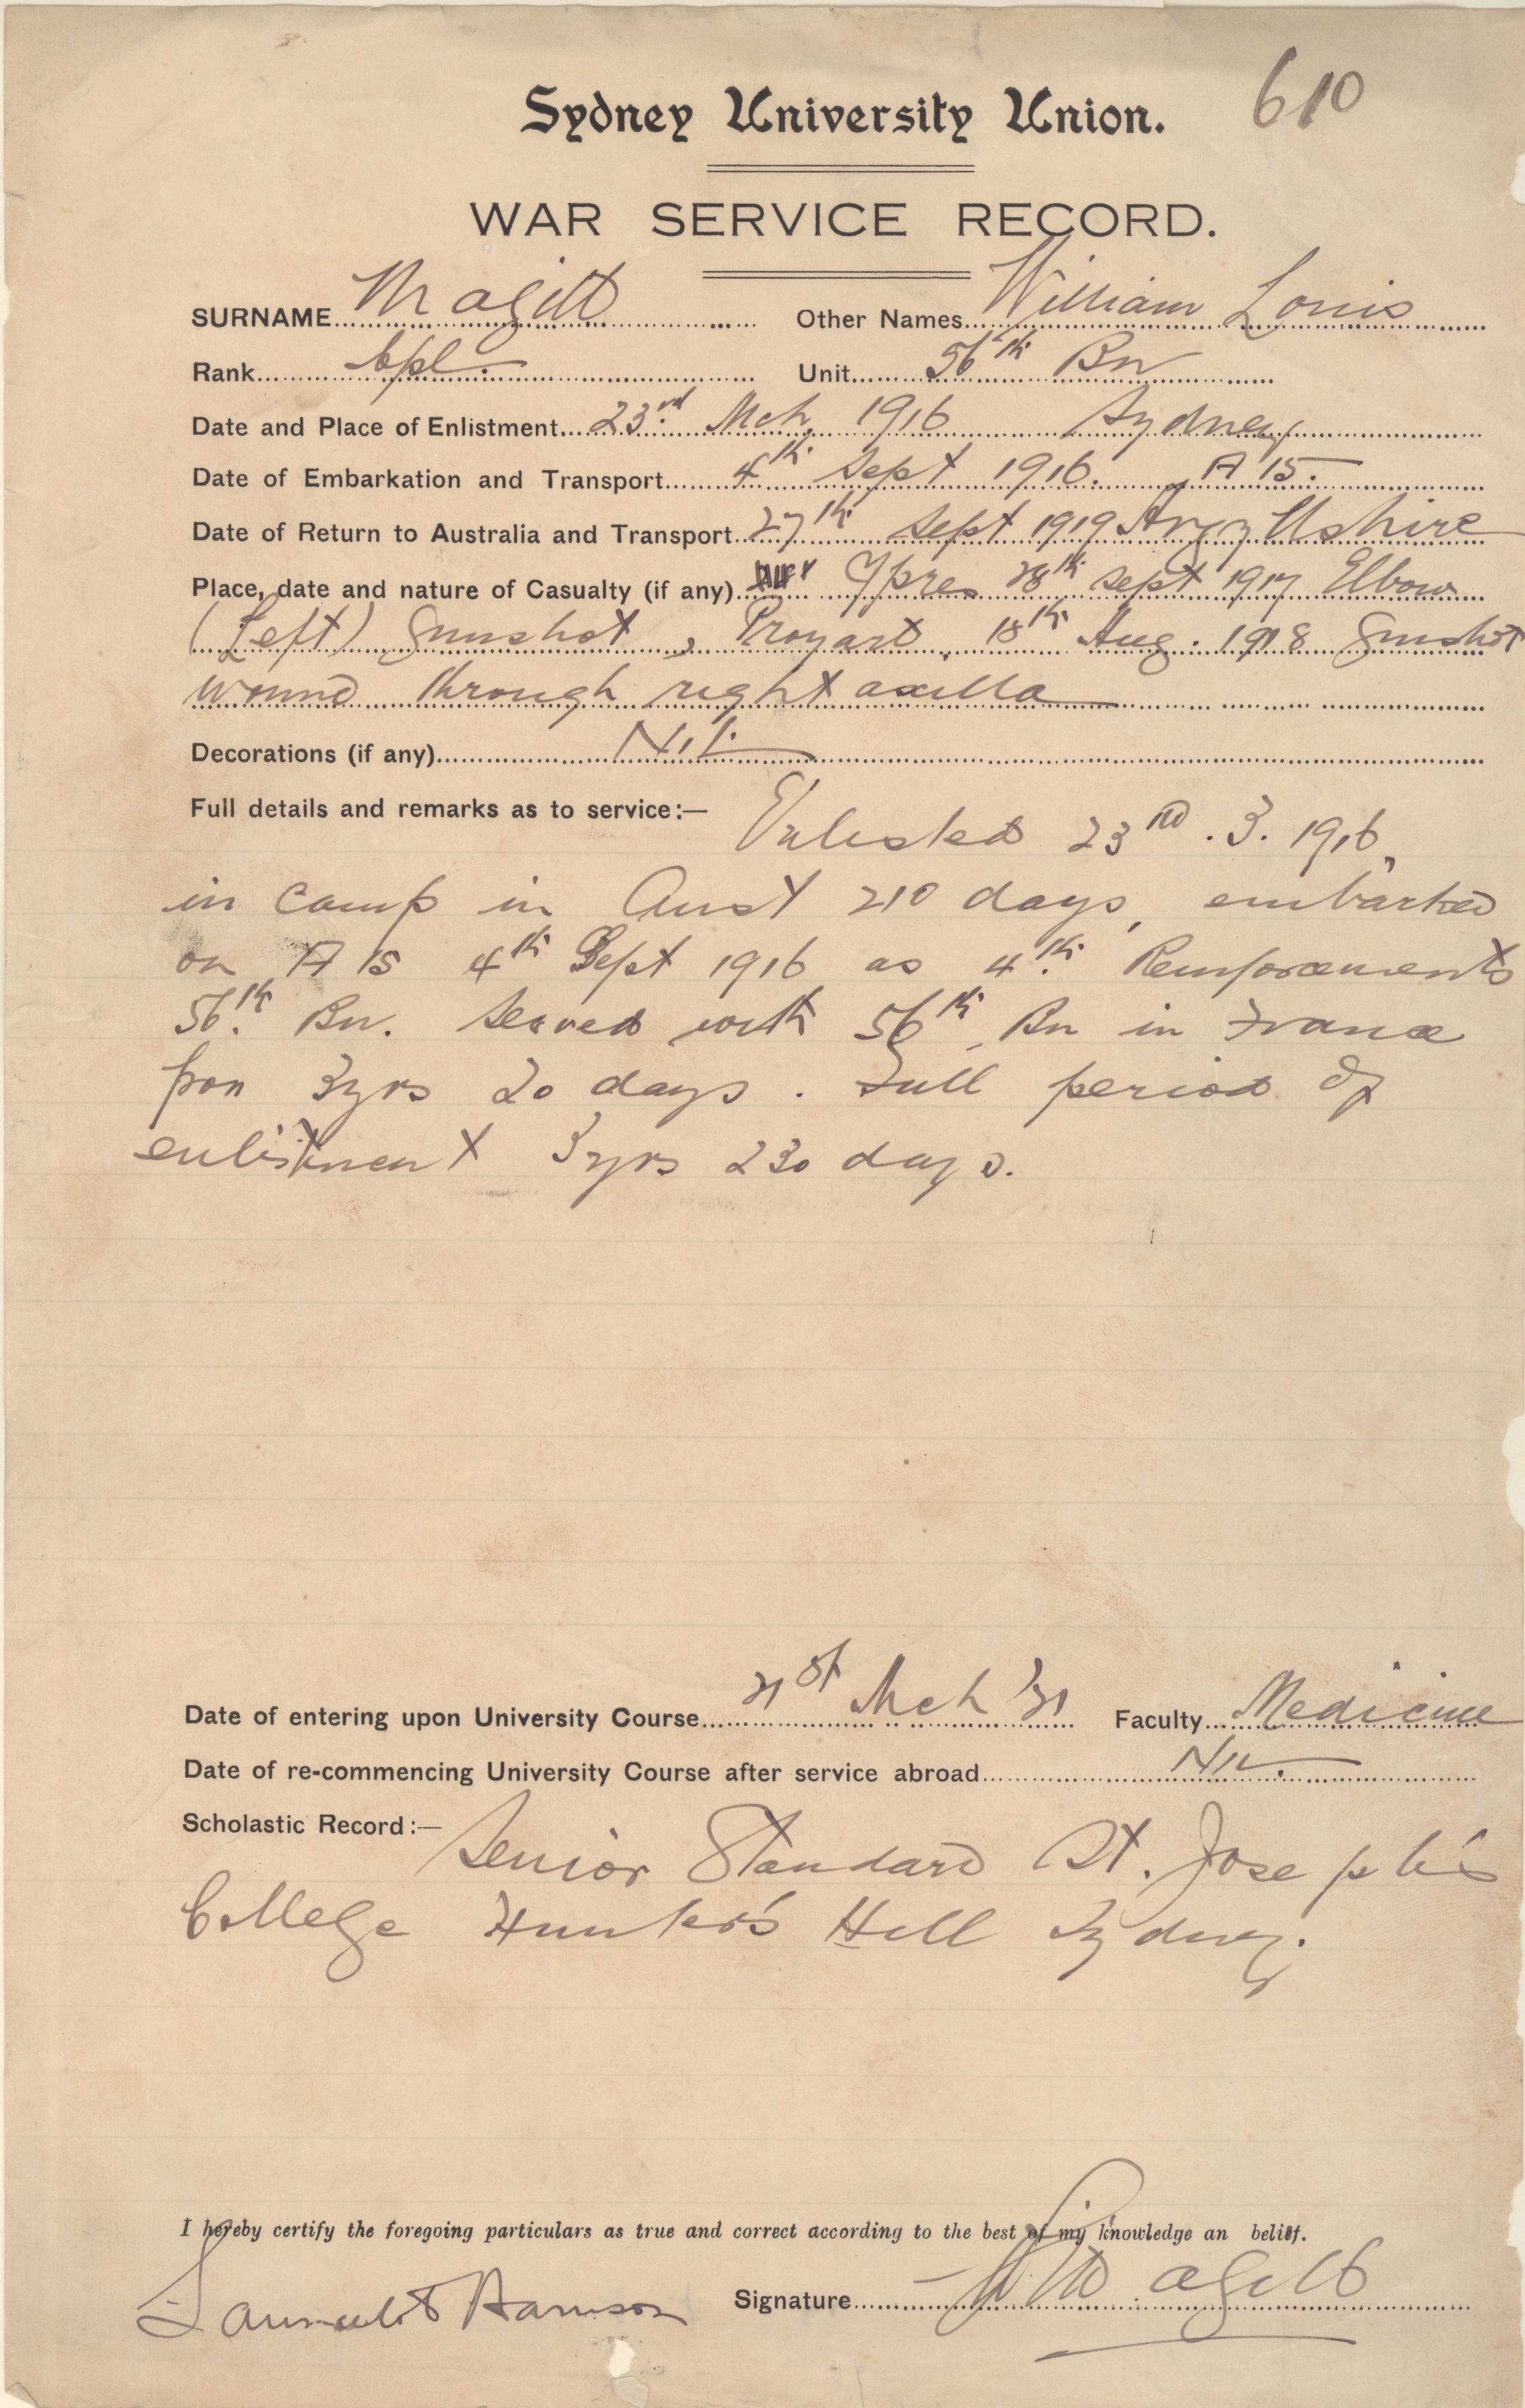 Sydney University Union. 610
WAR SERVICE RECORD.
SURNAME Magill Other Names William Louis
Rank Cpl. Unit 56th Bn
Date and Place of Enlistment 23rd Mch. 1916 Sydney
Date of Embarkation and Transport 4th Sept 1916. A 15.
Date of Return to Australia and Transport 27th Sept 1919 Argyllshire
Place, date and nature of Casualty (if any) Ypres 28th Sept 1917 Elbow
(Left) Gunshot, Proyart, 18th Aug. 1918 Gunshot
wound through right axilla
Decorations (if any) Nil.
Full details and remarks as to service:— Enlisted 23rd. 3. 1916,
in camp in Aust 210 days, embarked
on A 15 4th Sept 1916 as 4th Reinforcements
56th Bn. Served with 56th Bn in France
for 3yrs 20 days. Full period of
enlistment 3yrs 230 days.
Date of entering upon University Course 21st Mch '21 Faculty Medicine
Date of re-commencing University Course after service abroad Nil.
Scholastic Record:— Senior Standard St. Joseph's
College Hunter's Hill Sydney.
I hereby certify the foregoing particulars as true and correct according to the best of my knowledge an belief.
Harrison Signature Magill